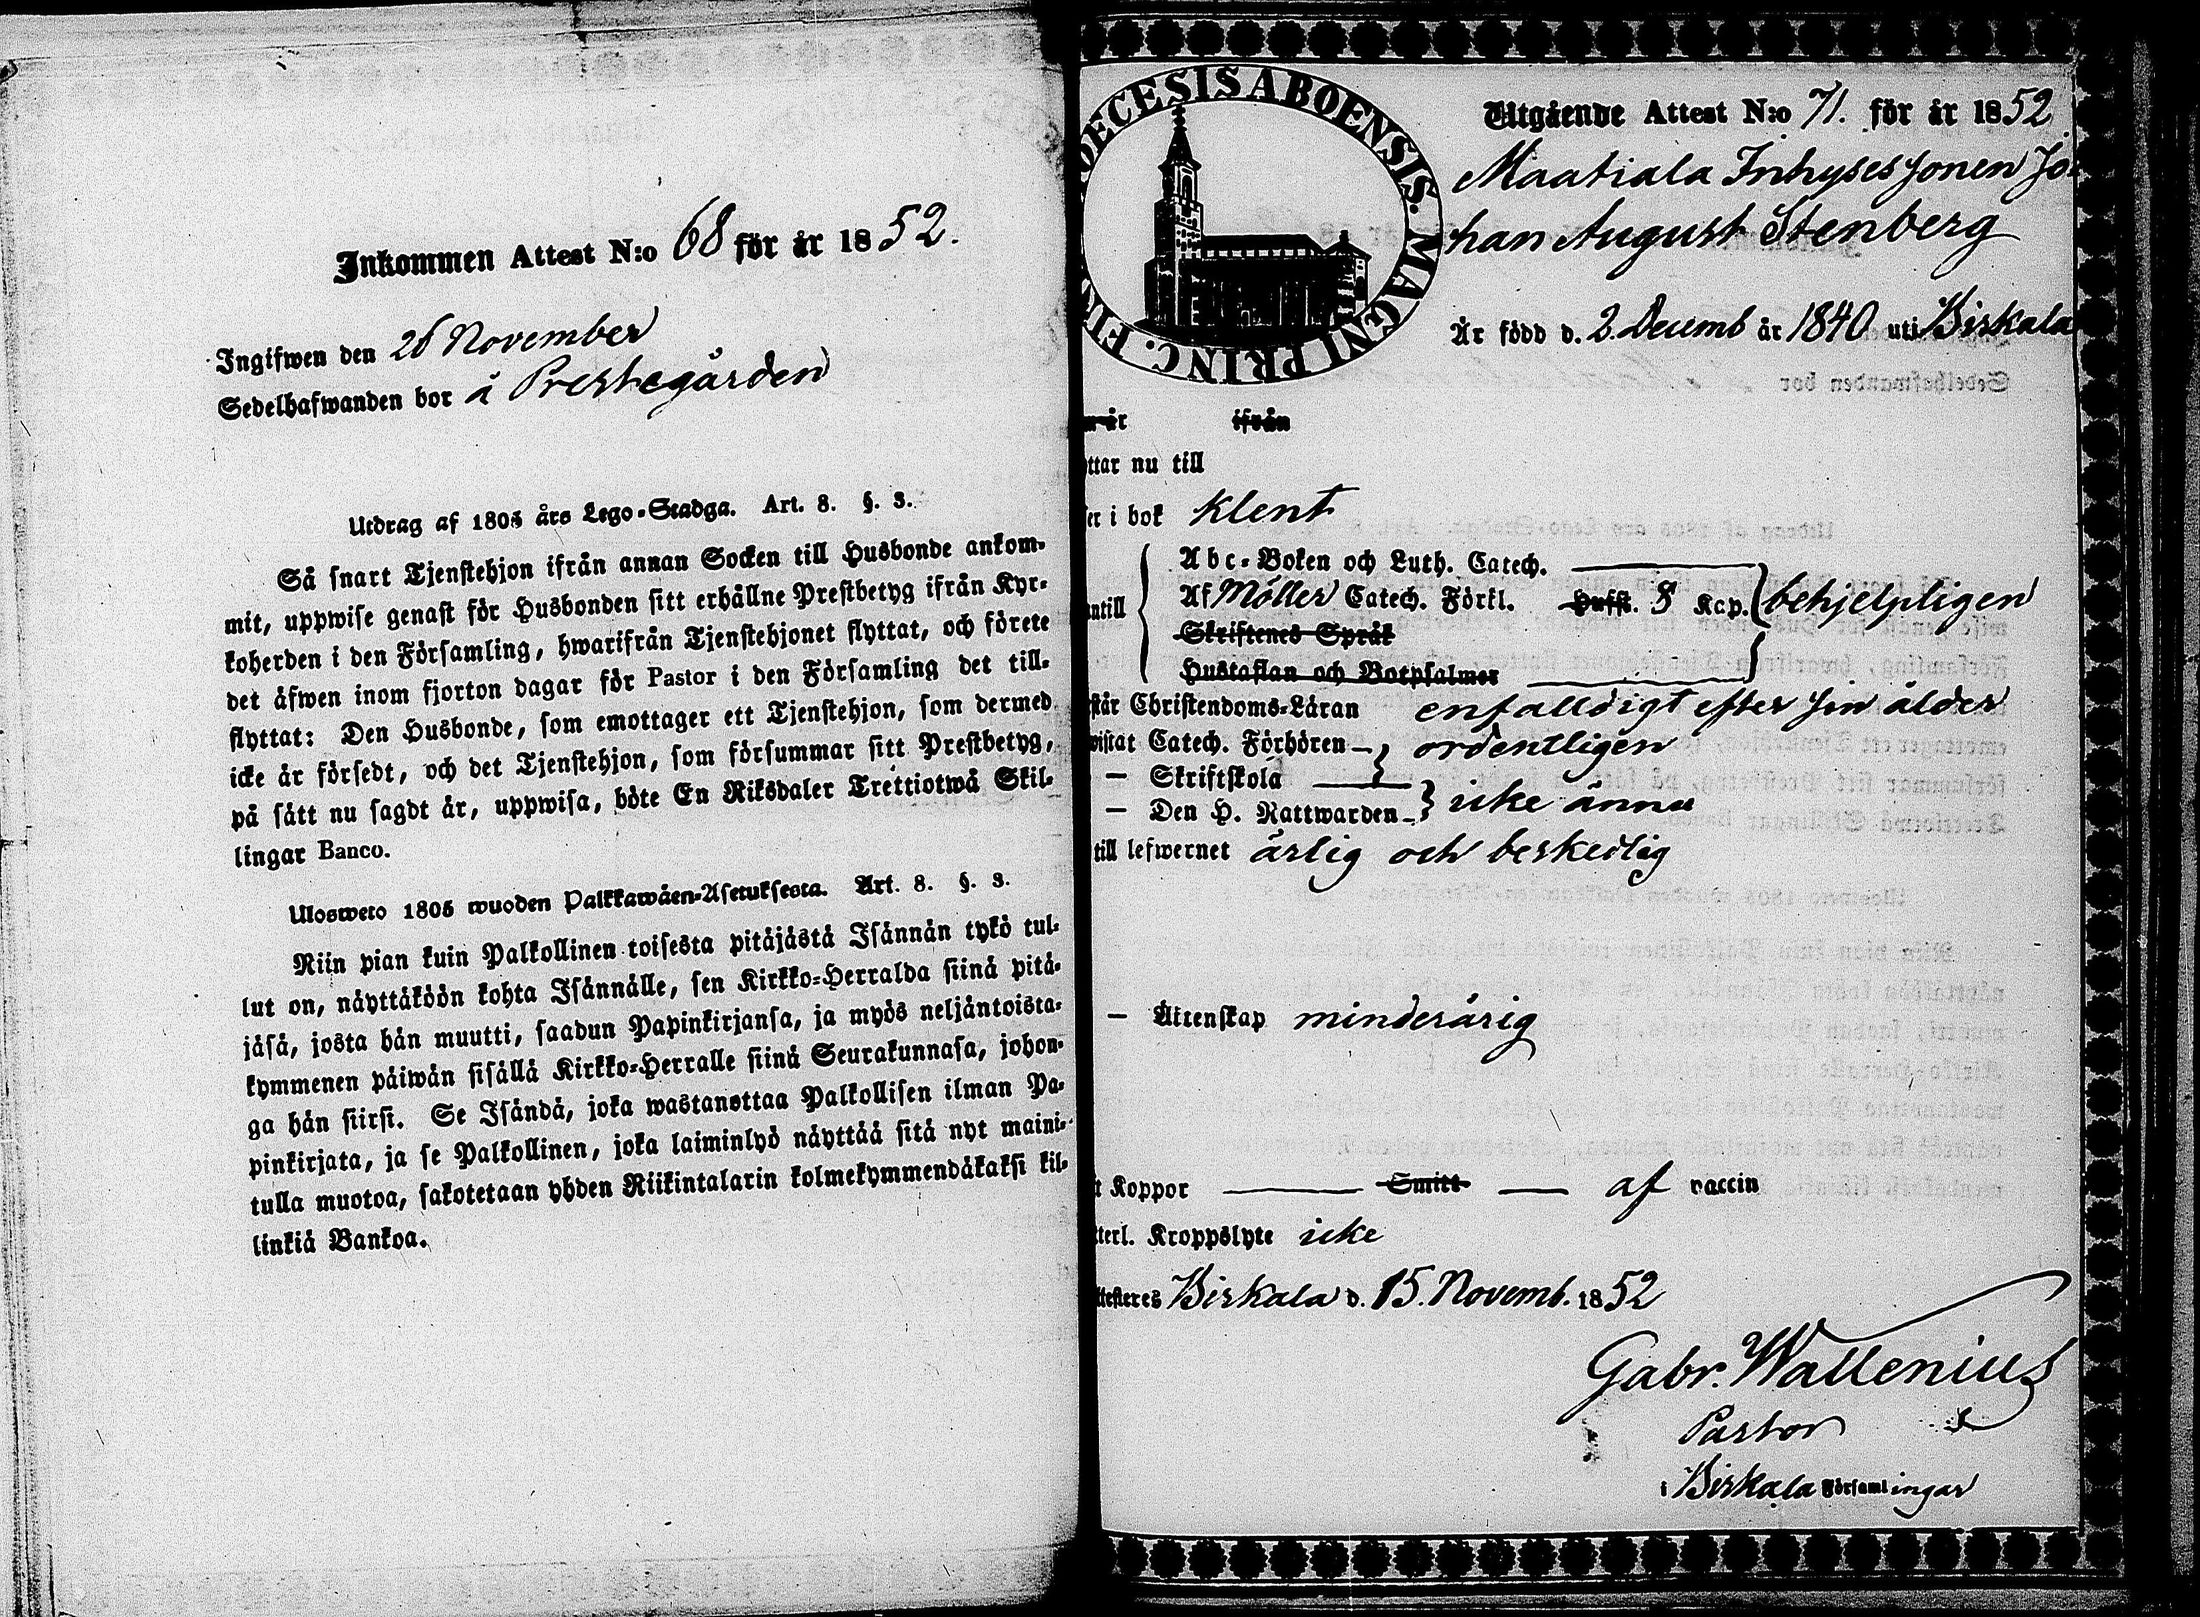 Inkommen Attest N:o 68 för år 1852.
Ingifwen den 26 November
Sedelhafwanden bor å Prestegården
Utdrag af 1805 års Lego-Stadga. Art. 8. §. 3.
Så snart Tjenstehjon ifrån annan Socken till Husbonde ankom-
mit, uppwise genast för Husbonden sitt erhållne Prestbetyg ifrån Kyr-
koherden i den Församling, hwarifrån Tjenstehjonet flyttat, och förete
det äfwen inom fjorton dagar för Pastor i den Församling det till-
flyttat: Den Husbonde, som emottager ett Tjenstehjon, som dermed
icke är försedt, och det Tjenstehjon, som försummar sitt Prestbetyg,
på sätt nu sagdt är, uppwisa, böte En Riksdaler Trettiotwå Skil-
lingar Banco.
Ulosweto 1805 wuoden Palkkawäen-Asetuksesta. Art. 8. §. 3.
Niin pian kuin Palkollinen toisesta pitäjästä Isännän tykö tul-
lut on, näyttäköön kohta Isännälle, sen Kirkko-Herralda siinä pitä-
jäsä, josta hän muutti, saadun Papinkirjansa, ja myös neljäntoista-
kymmenen päiwän sisällä Kirkko-Herralle siinä Seurakunnasa, johon-
ga hän siirsi. Se Isändä, joka wastanottaa Palkollisen ilman Pa-
pinkirjata, ja se Palkollinen, joka laiminlyö näyttää sitä nyt maini-
tulla muotoa, sakotetaan yhden Riikintalarin kolmekymmendäkaksi kil-
linkiä Bankoa.
OECESIS ABOENSIS. MAGNI PRINC. FIN
Utgående Attest N:o 71. för år 1852
Maatiala Inhyses sonen Jo-
han August Stenberg
Är född d. 2. Decemb år 1840 uti Birkala
n år ifrån
ttar nu till
er i bok klent
Abc-Boken och Luth. Catech.
ntill Af Möller Catech. Förkl. Hufst. 8 Kap. behjelpligen
Skriftenes Språk
Hustaflan och Botpsalmer
står Christendoms-Läran enfalldigt efter sin ålder
wistat Catech. Förhören ordentligen
— Skriftskola
— Den H. Nattwarden icke ännu
till lefwernet ärlig och beskedlig
— Äktenskap minderårig
t Koppor Smitt af vaccin
tterl. Kroppslyte icke
ttesteres Birkala d. 15. Novemb. 1852
Gabr. Wallenius
Pastor
i Birkala Församlingar